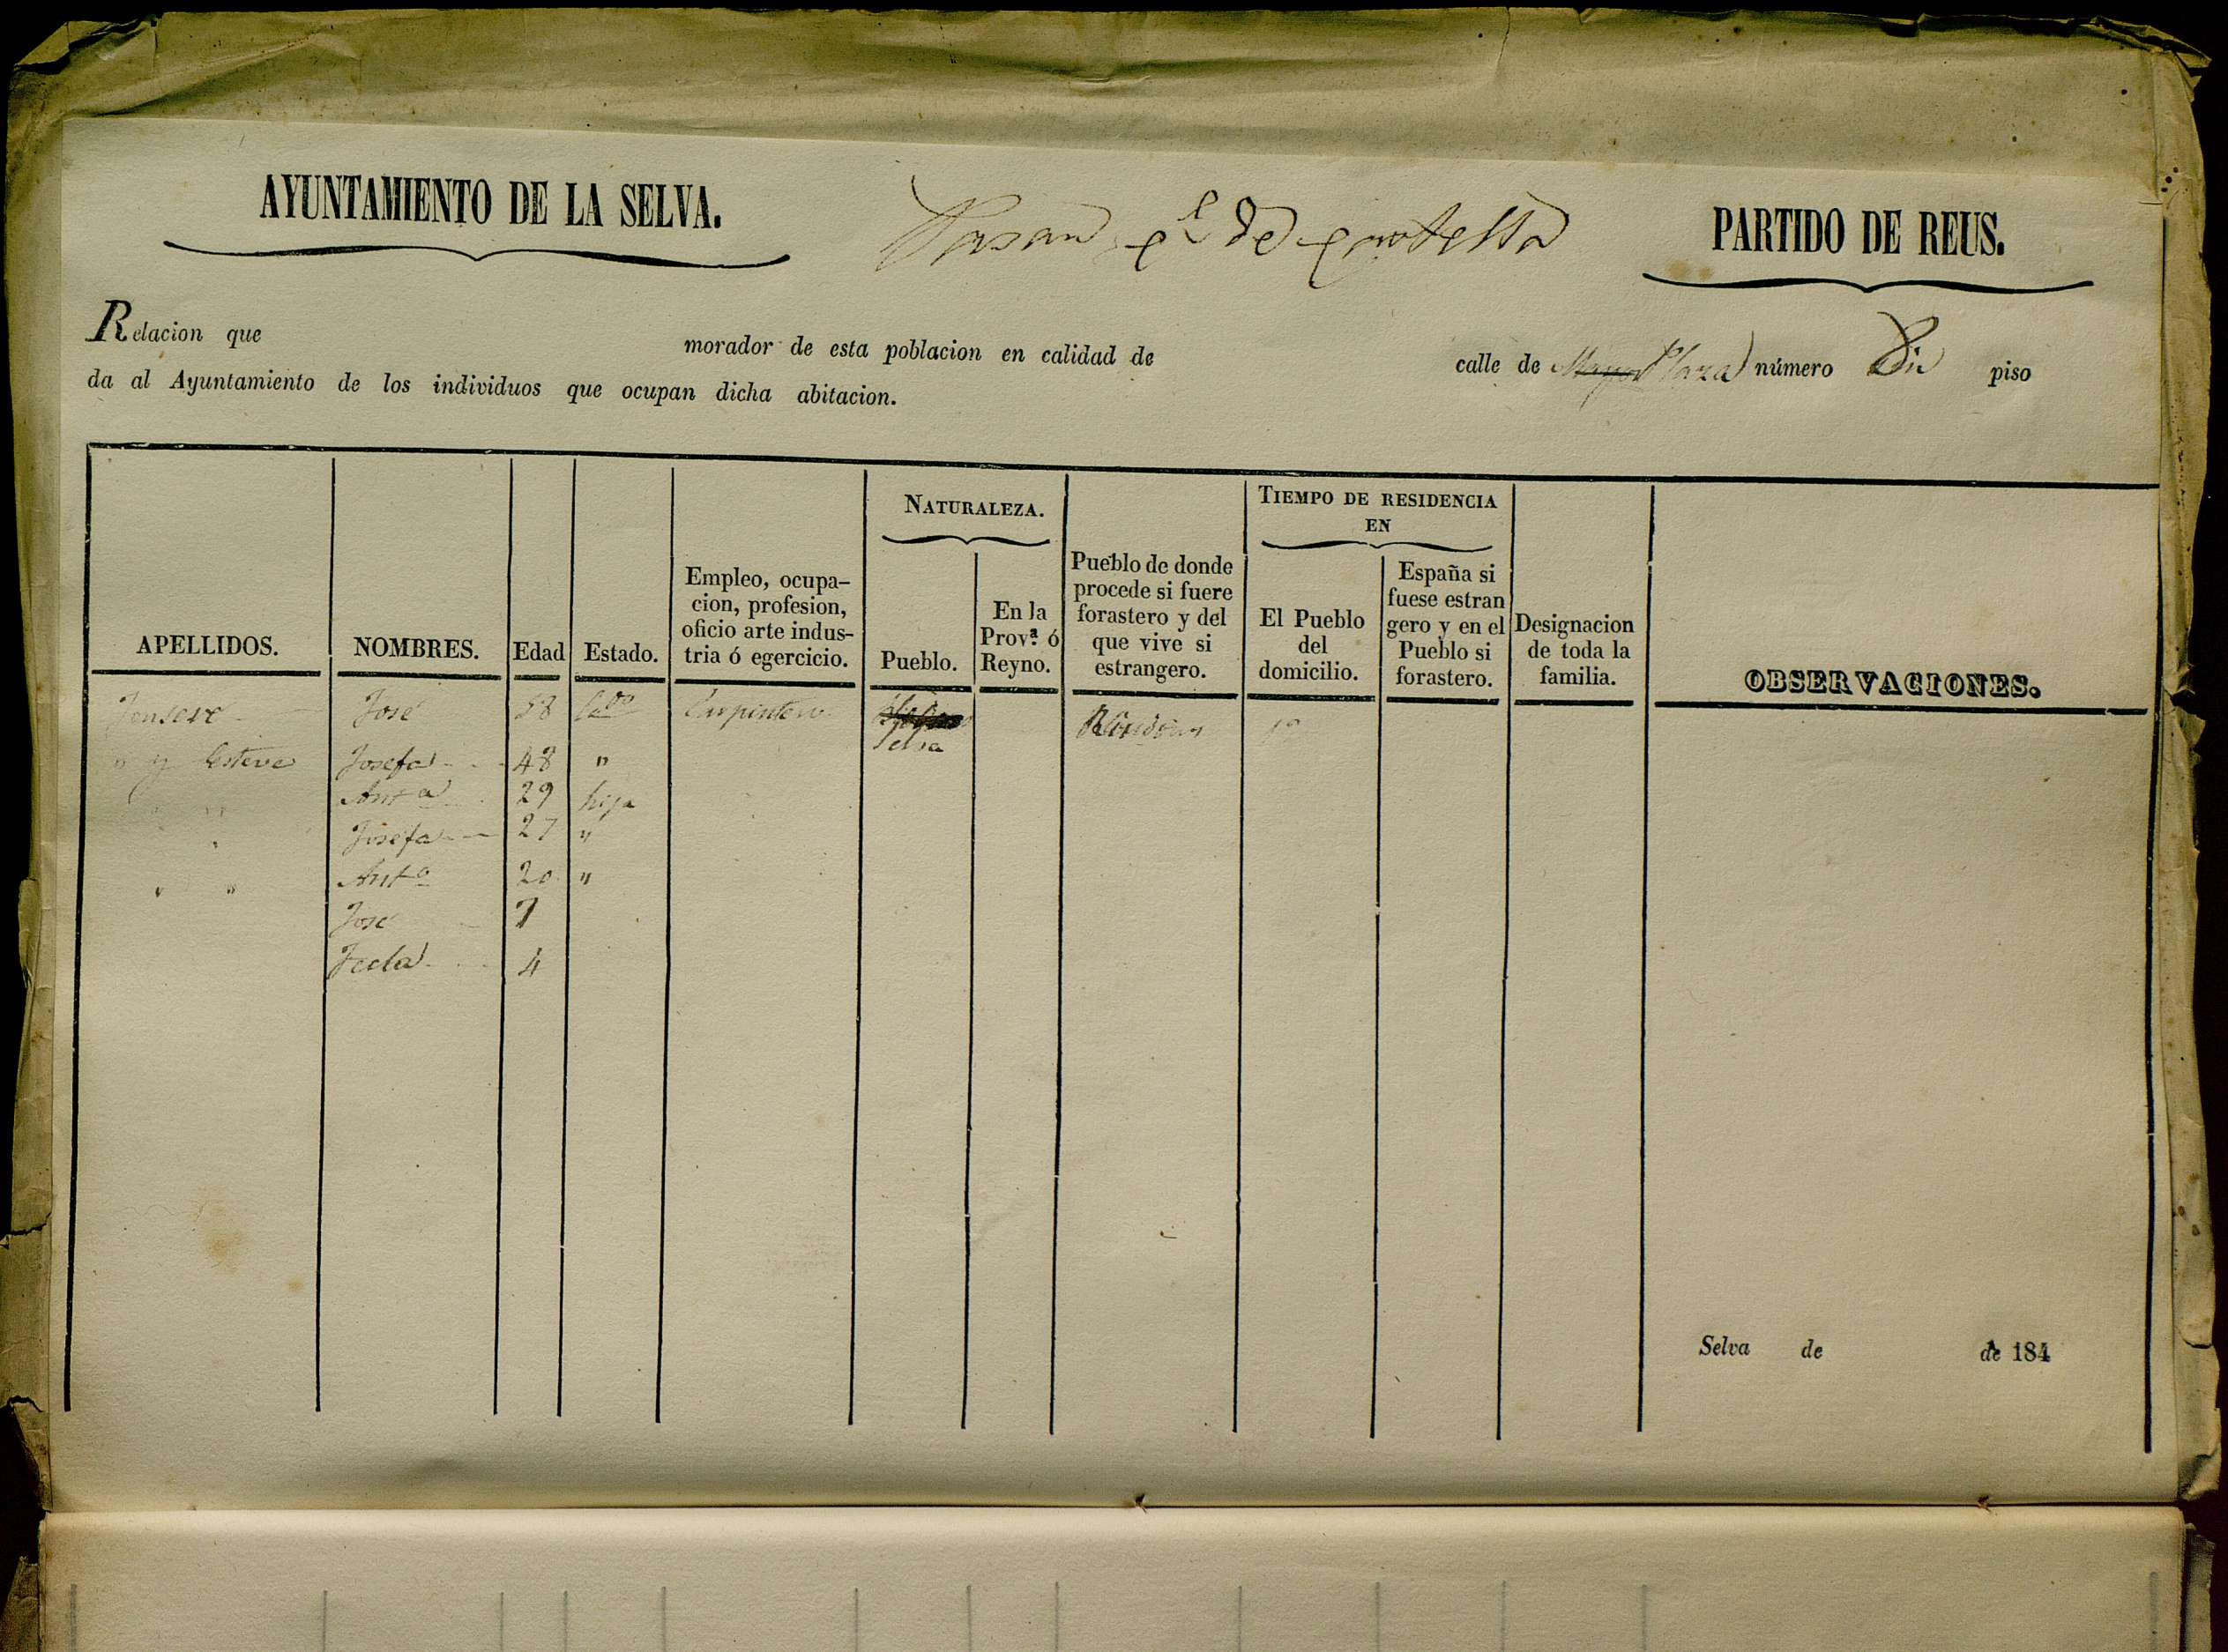 AYUNTAMIENTO DE LA SELVA.
de
PARTIDO DE REUS.
Relacion que morador de esta poblacion en calidad de calle de Mayor Plaza número piso
da al Ayuntamiento de los individuos que ocupan dicha abitacion.
APELLIDOS.
NOMBRES.
Edad
Estado.
Empleo, ocupa-
cion, profesion,
oficio arte indus-
tria ó egercicio.
NATURALEZA.
Pueblo.
En la
Prov.ª ó
Reyno.
Pueblo de donde
procede si fuere
forastero y del
que vive si
estrangero.
TIEMPO DE RESIDENCIA
EN
El Pueblo
del
domicilio.
España si
fuese estran
gero y en el
Pueblo si
forastero.
Designacion
de toda la
familia.
OBSERVACIONES.
José 58 Carpintero Selva
" y Esteve Josefa 48 "
" Ant.a 29 hija
" Josefa 27 "
" " Ant.a 20 "
José 7
Tecla 4
Selva de de 184